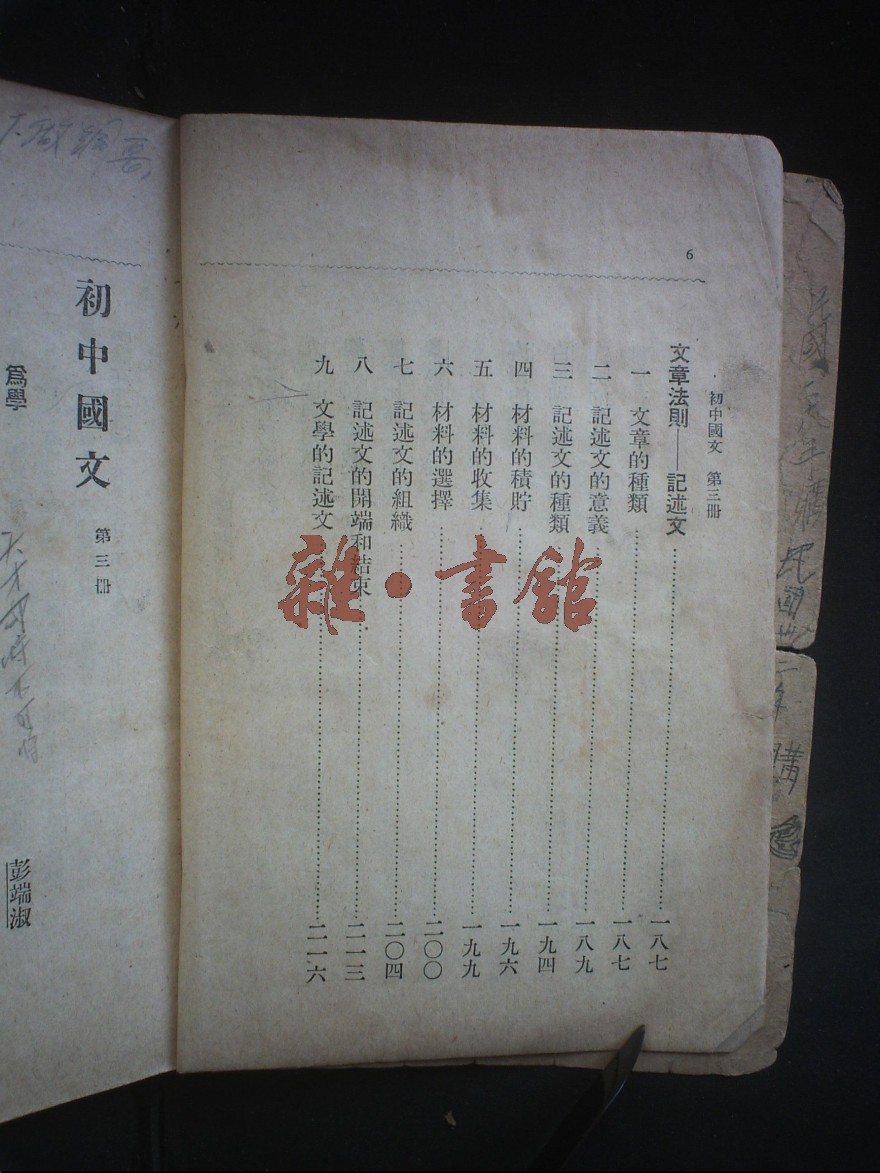 6
初中國文 第三冊
文章法則——記述文……一八七
一 文章的種類……一八七
二 記述文的意義……一八九
三 記述文的種類……一九四
四 材料的積貯……一九六
五 材料的收集……一九九
六 材料的選擇……二〇〇
七 記述文的組織……二〇四
八 記述文的開端和結束……二一三
九 文學的記述文……二一六
雜·書館
初中國文 第三冊
為學
彭端淑